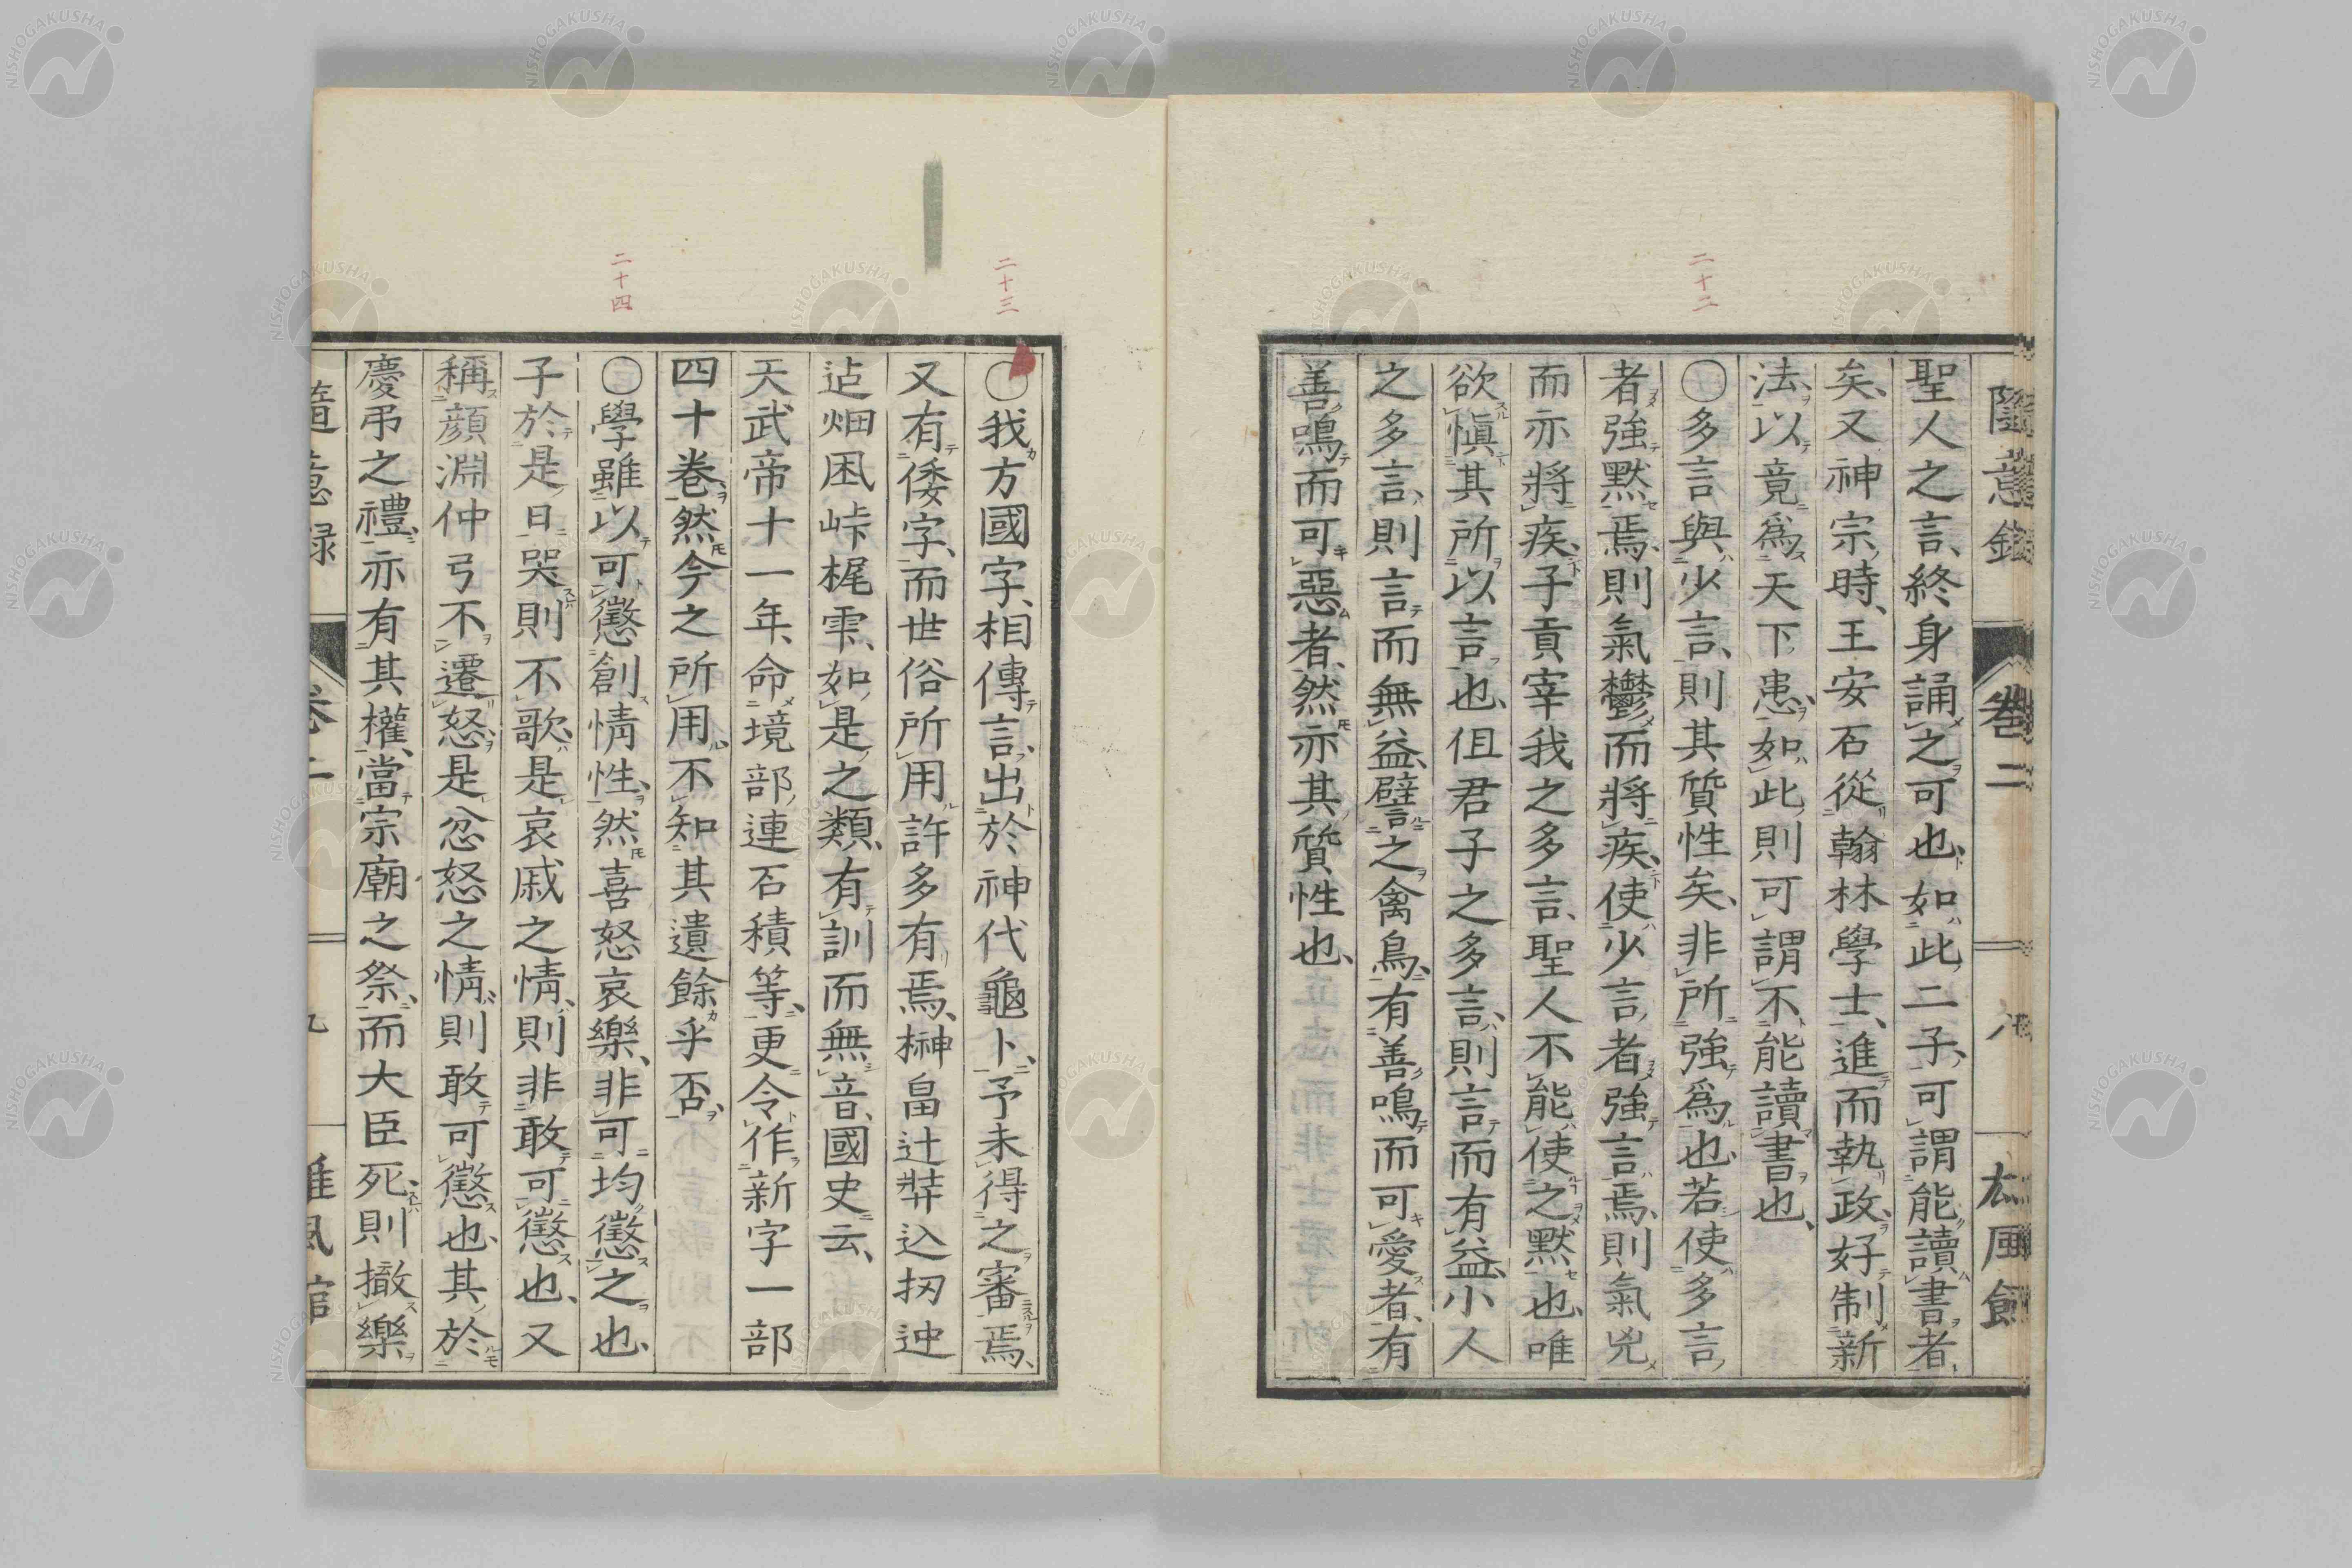 隨意錄
卷二
聖人之言、終身誦之可也、如此二子、可謂能讀書者
矣、又神宗時、王安石從翰林學士、進而執政、好制新
法、以竟爲天下患、如此則可謂不能讀書也、
二十二
〇多言與少言、則其質性矣、非所強爲也、若使多言
者強黙焉、則氣鬱而將疾、使少言者強言焉、則氣兇
而亦將疾、子貢宰我之多言、聖人不能使之黙也、唯
欲愼其所以言也、但君子之多言、則言而有益、小人
之多言、則言而無益、譬之禽鳥、有善鳴而可愛者、有
善鳴而可惡者、然亦其質性也、
二十三
〇我方國字、相傳言、出於神代龜卜、予未得之審焉、
又有倭字、而世俗所用許多有焉、榊畠辻弉込扨迚
迠畑困峠梶雫、如是之類、有訓而無音、國史云、
天武帝十一年、命境部連石積等、更令作新字一部
四十卷、然今之所用、不知其遺餘乎否、
二十四
〇學雖以可懲創情性、然喜怒哀樂、非可均懲之也、
子於是日哭、則不歌、是哀戚之情、則非敢可懲也、又
稱顔淵仲弓不遷怒、是忿怒之情、則敢可懲也、其於
慶弔之禮、亦有其權、當宗廟之祭、而大臣死、則撤樂
隨意錄
卷二
九